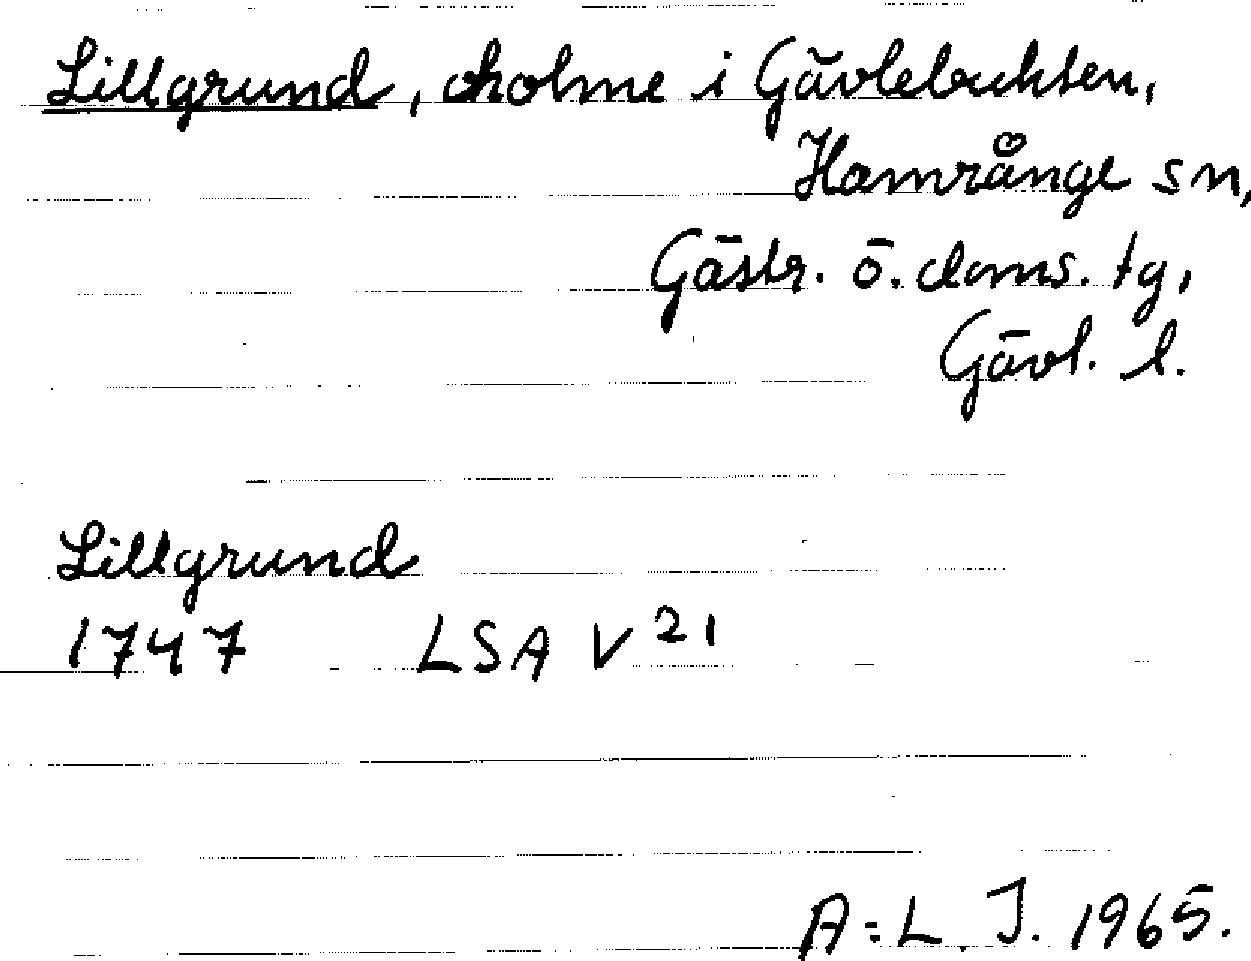 Lillgrund, holme i Gävlebukten,
Hamrånge sn,
Gästr. ö. doms. tg,
Gävl. l.
Lillgrund
1747 LSA V 21
A:L. J. 1965.